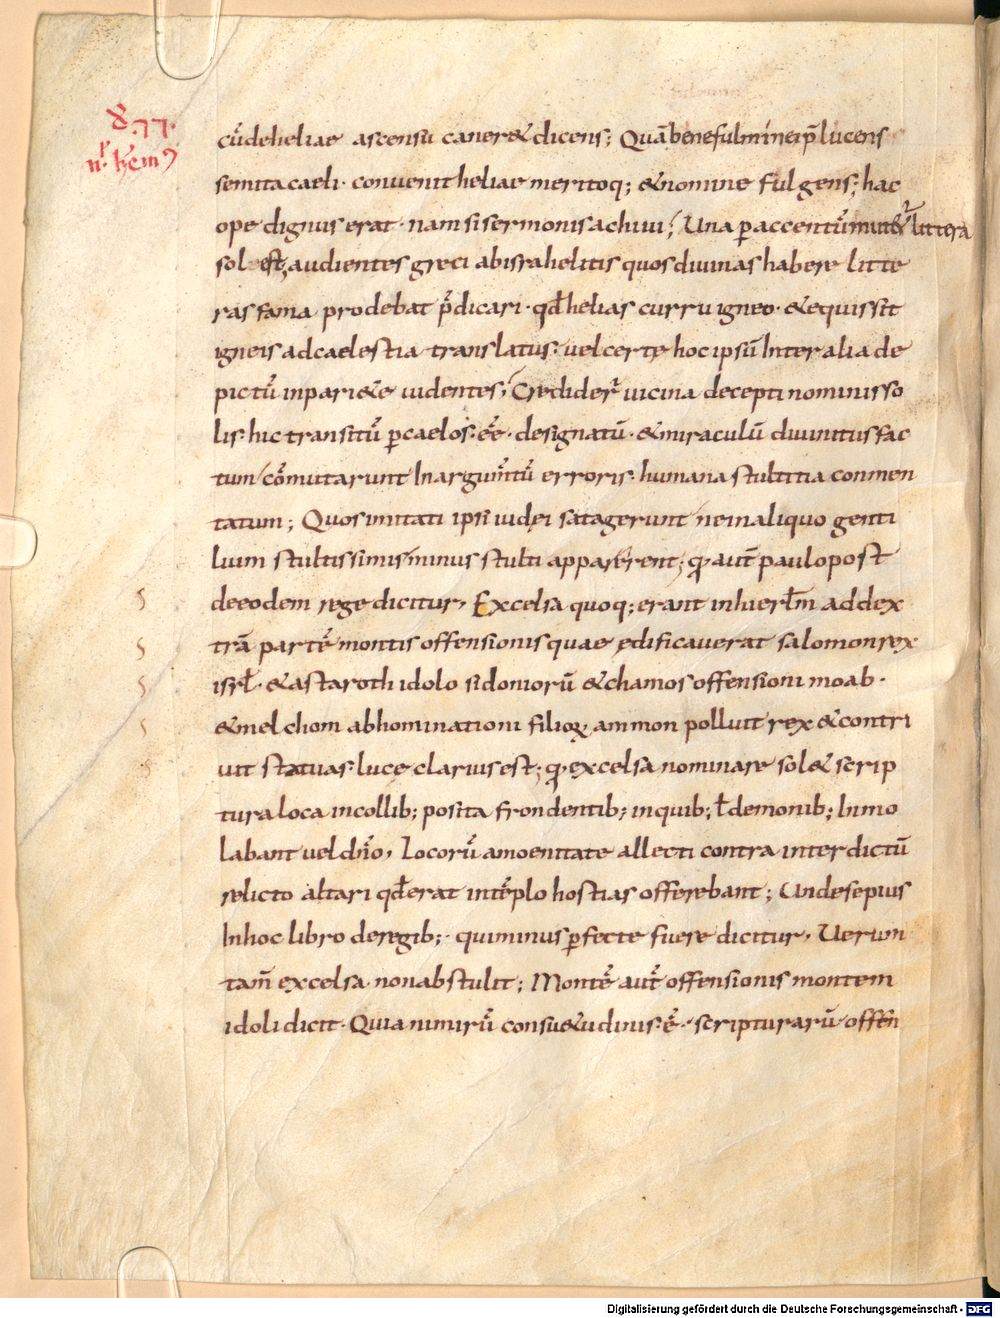 cū de heliae ascensu caner& dicens; Quā bene fulminei p̄lucens
semita caeli · convenit heliae meritoq; & nomine fulgens; hac
ope dignus erat · nam si sermonis achiui; Una p accentū mut&ur littera
sol est; audientes greci ab israhelitis quos divinas habere litte
ras fama prodebat p̄dicari · qđ helias curru igneo · & equis sit
igneis ad caelestia translatus · vel certe hoc ipsū Inter alia de
pictū in pari&e videntes; Crediderͭ vicina decepti nominis so
lis · hic transitū p caelos · eē · designatū · & miraculū divinitus fac
tum / cōmutarunt In argumͭtū erroris · humana stultitia conmen
tatum; Quos imitati ipsi iudęi satagerunt ne in aliquo genti
lium stultissimis minus stulti apparerent; qđ aut̄ paulo post
de eodem rege dicitur, Excelsa quoq; erant in hierłm ad dex
trā partē montis offensionis quae ędificaverat salomon rex
isrł · & astaroth idolo sidoniorū & chamos offensioni moab ·
& melchom abhominationi filioꝝ ammon polluit rex & contri
vit statuas · luce clarius est; qđ excelsa nominare sol& scrip
tura loca in collib; posita frondentib; in quib; ł demonib; Inmo
labant vel dn̄o, Locorū amoenitate allecti contra interdictū
relicto altari qđ erat in tēplo hostias offerebant; Unde sepius
In hoc libro de regib; · qui minus pfecte fuere dicitur, Verum
tam̄ excelsa non abstulit; Montē aut̄ offensionis montem
idoli dicit · Quia nimirū consu&udinis · ē · scripturarū offen
Digitalisierung gefördert durch die Deutsche Forschungsgemeinschaft - DFG